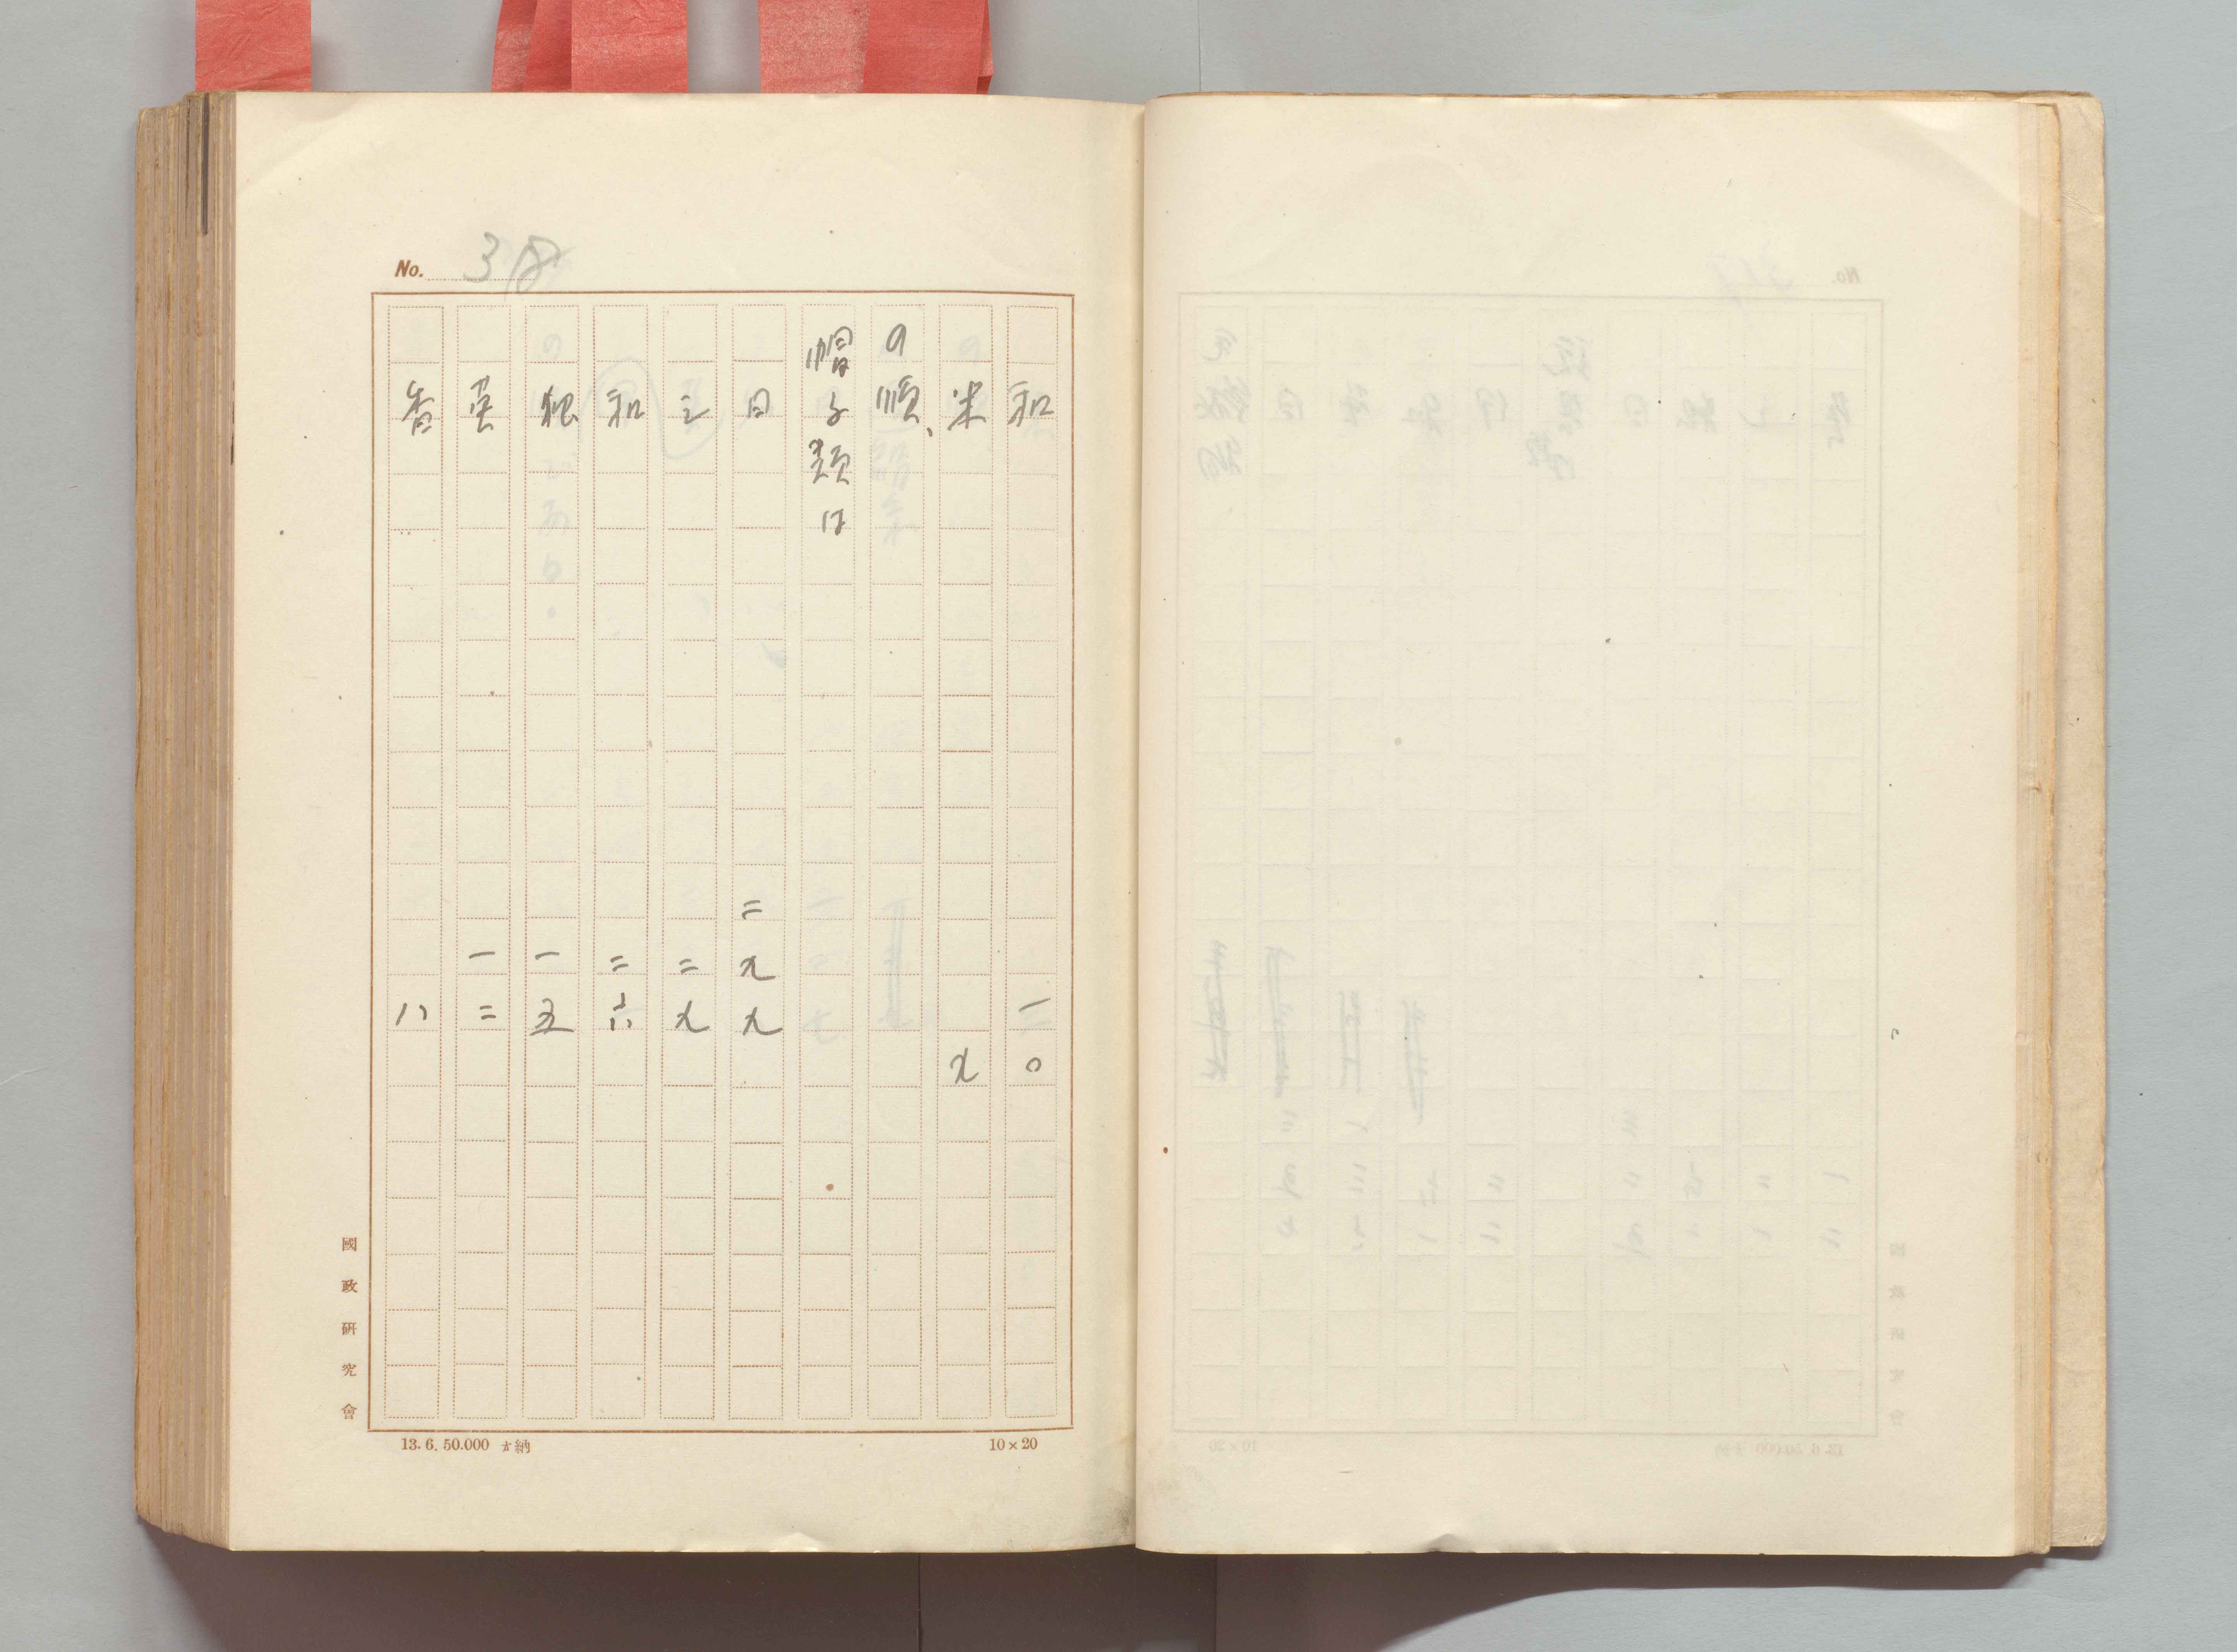 No. 38
和 一〇
米 九
の順、
帽子類は
日 二九九
三 二九
和 二六
独 一五
英 一二
香 八
國政研究會
13. 6. 50.000 納
10×20